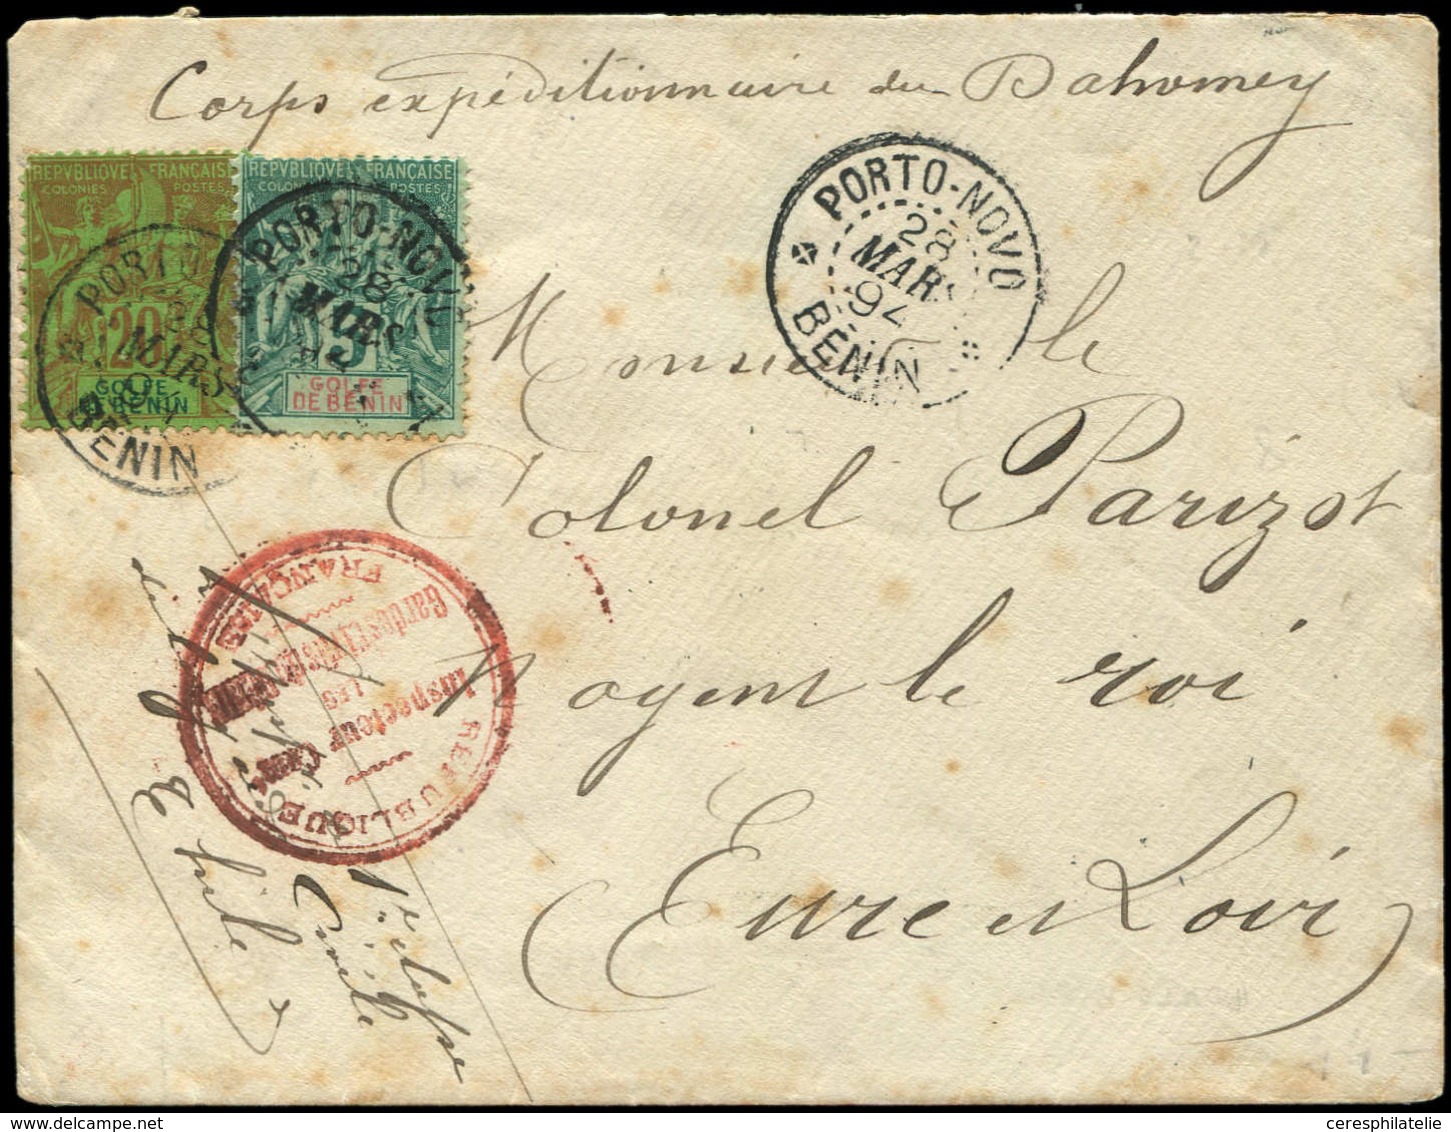 Corps expéditionnaire du Dahomey
REPVBLIQVE FRANÇAISE
COLONIES POSTES
20
GOLFE
DE BÉNIN
REPVBLIQVE FRANÇAISE
COLONIES POSTES
5
GOLFE
DE BÉNIN
PORTO
28
MARS
BÉNIN
PORTO-NOVO
28
MARS
PORTO-NOVO
28
MARS
94
BÉNIN
Monsieur le
Colonel Parizot
Nogent le roi
Eure et Loir
REPUBLIQUE FRANÇAISE
Inspecteur
1r classe
Civile
ceresphilatelie